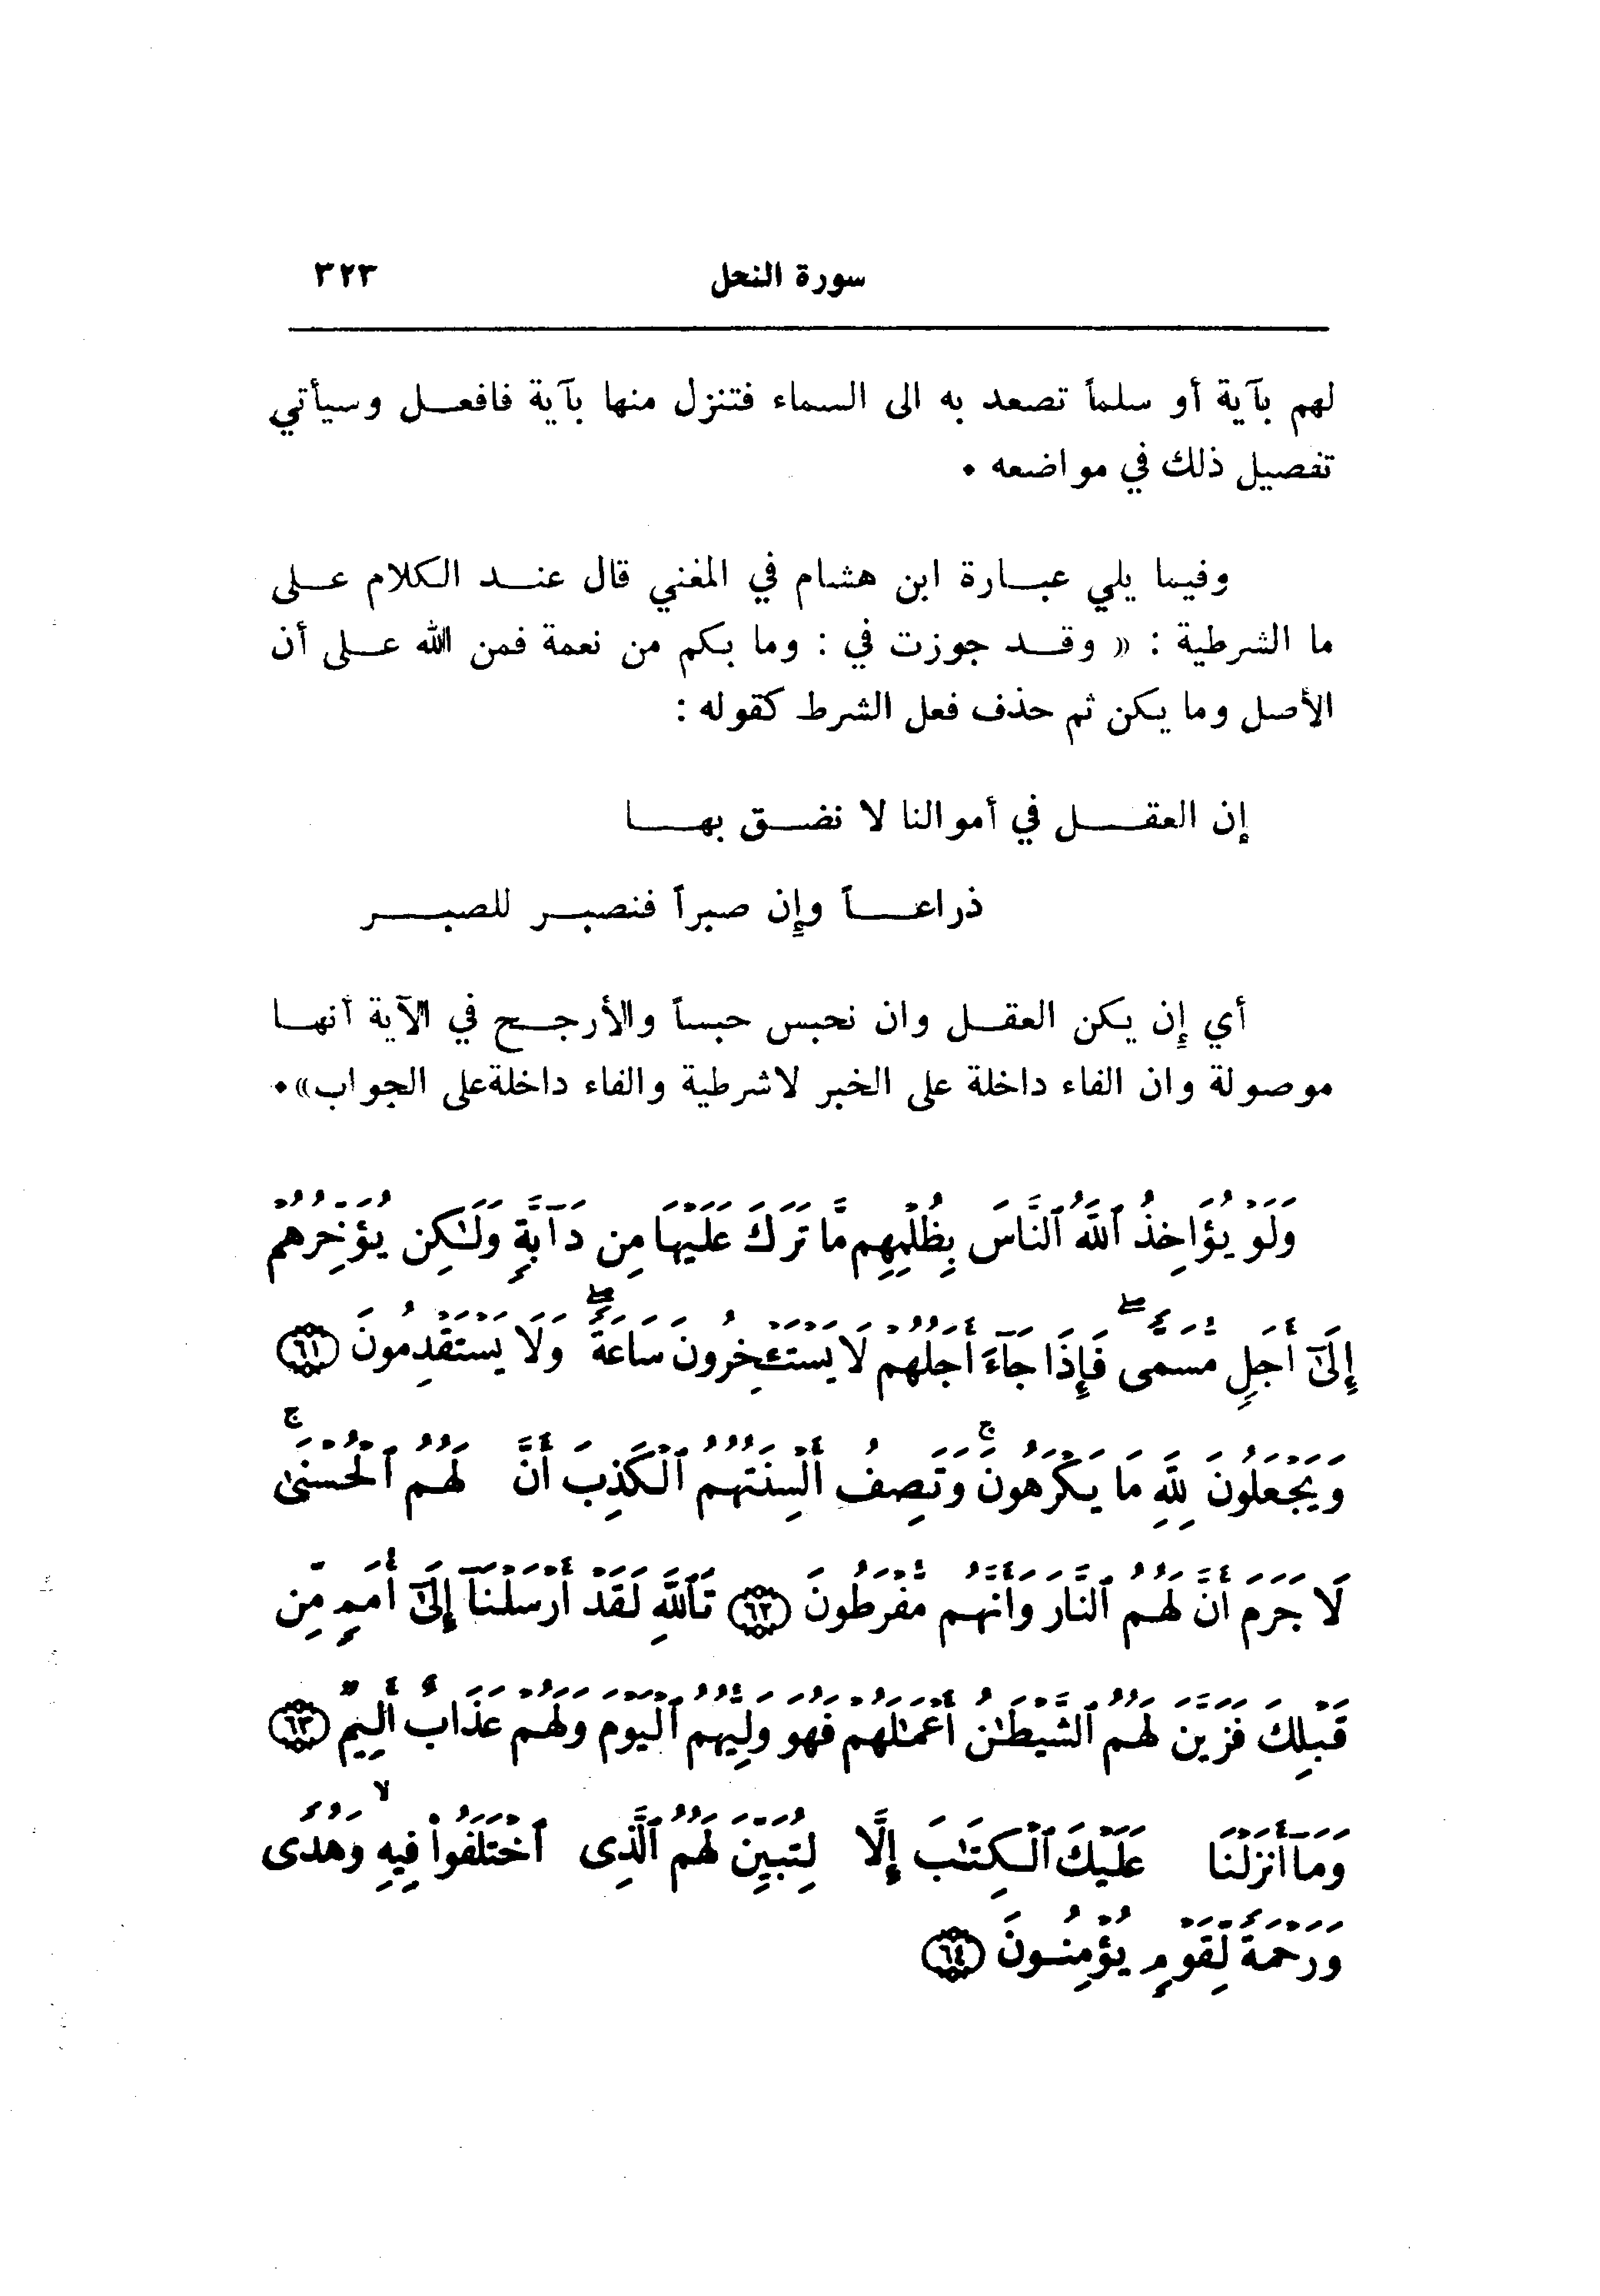 سورة النحل ٣٢٣
لهم بآية أو سلماً تصعد به الى السماء فتنزل منها بآية فافعل وسيأتي
تفصيل ذلك في مواضعه •
وفيما يلي عبارة ابن هشام في المغني قال عند الكلام على
ما الشرطية : « وقد جوزت في : وما بكم من نعمة فمن الله على أن
الأصل وما يكن ثم حذف فعل الشرط كقوله :
إن العقل في أموالنا لا نضق بها
ذراعاً وإن صبراً فنصبر للصبر
أي إن يكن العقل وان نحبس حبساً والأرجح في الآية أنها
موصولة وان الفاء داخلة على الخبر لاشرطية والفاء داخلةعلى الجواب»•
وَلَوْ يُؤَاخِذُ ٱللَّهُ ٱلنَّاسَ بِظُلْمِهِم مَّا تَرَكَ عَلَيْهَا مِن دَآبَّةٍ وَلَـٰكِن يُؤَخِّرُهُمْ
إِلَىٰٓ أَجَلٍ مُّسَمًّى ۖ فَإِذَا جَآءَ أَجَلُهُمْ لَا يَسْتَـْٔخِرُونَ سَاعَةً ۖ وَلَا يَسْتَقْدِمُونَ ﴿٦١﴾
وَيَجْعَلُونَ لِلَّهِ مَا يَكْرَهُونَ ۚ وَتَصِفُ أَلْسِنَتُهُمُ ٱلْكَذِبَ أَنَّ لَهُمُ ٱلْحُسْنَىٰ ۚ
لَا جَرَمَ أَنَّ لَهُمُ ٱلنَّارَ وَأَنَّهُم مُّفْرَطُونَ ﴿٦٢﴾ تَٱللَّهِ لَقَدْ أَرْسَلْنَآ إِلَىٰٓ أُمَمٍ مِّن
قَبْلِكَ فَزَيَّنَ لَهُمُ ٱلشَّيْطَـٰنُ أَعْمَـٰلَهُمْ فَهُوَ وَلِيُّهُمُ ٱلْيَوْمَ وَلَهُمْ عَذَابٌ أَلِيمٌ ﴿٦٣﴾
وَمَآ أَنزَلْنَا عَلَيْكَ ٱلْكِتَـٰبَ إِلَّا لِتُبَيِّنَ لَهُمُ ٱلَّذِى ٱخْتَلَفُوا۟ فِيهِ ۙ وَهُدًى
وَرَحْمَةً لِّقَوْمٍ يُؤْمِنُونَ ﴿٦٤﴾